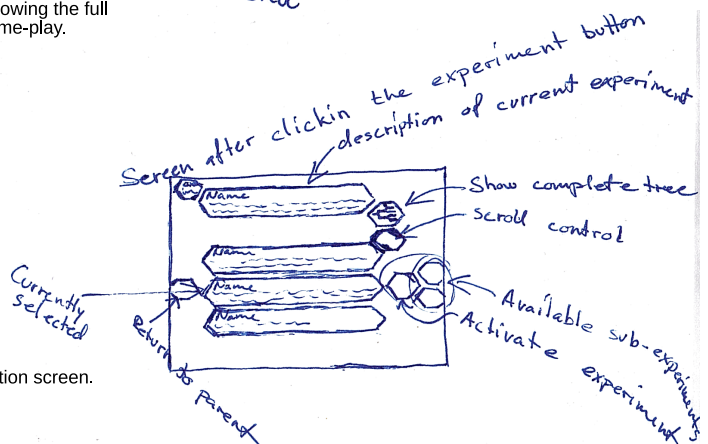 owing the full
me-play.
Screen after clickin the experiment button
description of current experiment
Name
Show complete tree
Scroll control
Name
Currently
selected
Name
Return to parent
Name
Available sub-experiments
Activate experiment
tion screen.